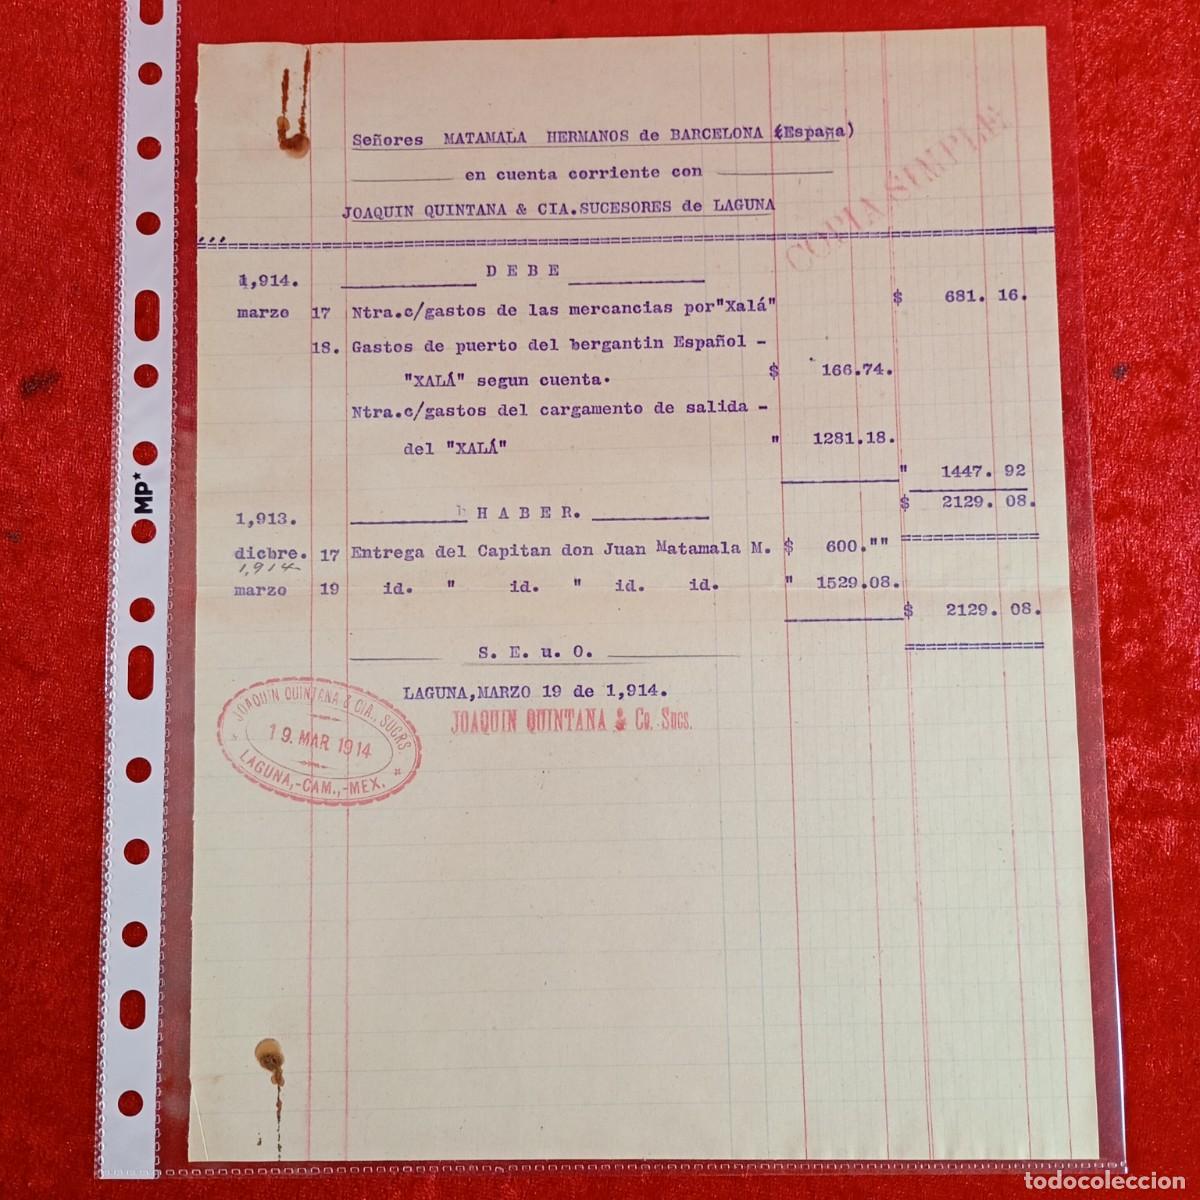 Señores MATAMALA HERMANOS de BARCELONA (España)
en cuenta corriente con
JOAQUIN QUINTANA & CIA.SUCESORES de LAGUNA
COPIA SIMPLE
1,914. D E B E
marzo 17 Ntra.c/gastos de las mercancias por"Xalá" $ 681. 16.
18. Gastos de puerto del bergantin Español -
"XALÁ" segun cuenta. $ 166.74.
Ntra.c/gastos del cargamento de salida -
del "XALÁ" " 1281.18.
" 1447. 92
$ 2129. 08.
1,913. H A B E R.
dicbre. 17 Entrega del Capitan don Juan Matamala M. $ 600.""
1,914
marzo 19 id. " id. " id. id. " 1529.08.
$ 2129. 08.
S. E. u. O.
LAGUNA,MARZO 19 de 1,914.
JOAQUIN QUINTANA & Co. Sucs.
JOAQUIN QUINTANA & CIA., SUCRS.
19. MAR 1914
LAGUNA,-CAM.,-MEX.
MP*
todocoleccion